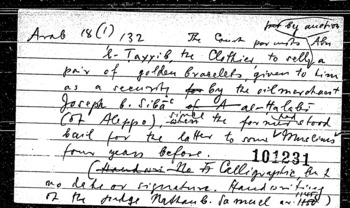 Arab 18(1) 132 The Court by auction
permits Abu
'l-Tayyib, the Clothier to sell a
pair of golden bracelets, given to him
as a security by the oil merchant
Joseph b. Siba' al-Halabi
(of Aleppo) when the former stood
bail for the latter to some Muslims
four years before. 101231
Calligraphic, the
no date or signature. Handwriting
of the judge Nathan b. Samuel